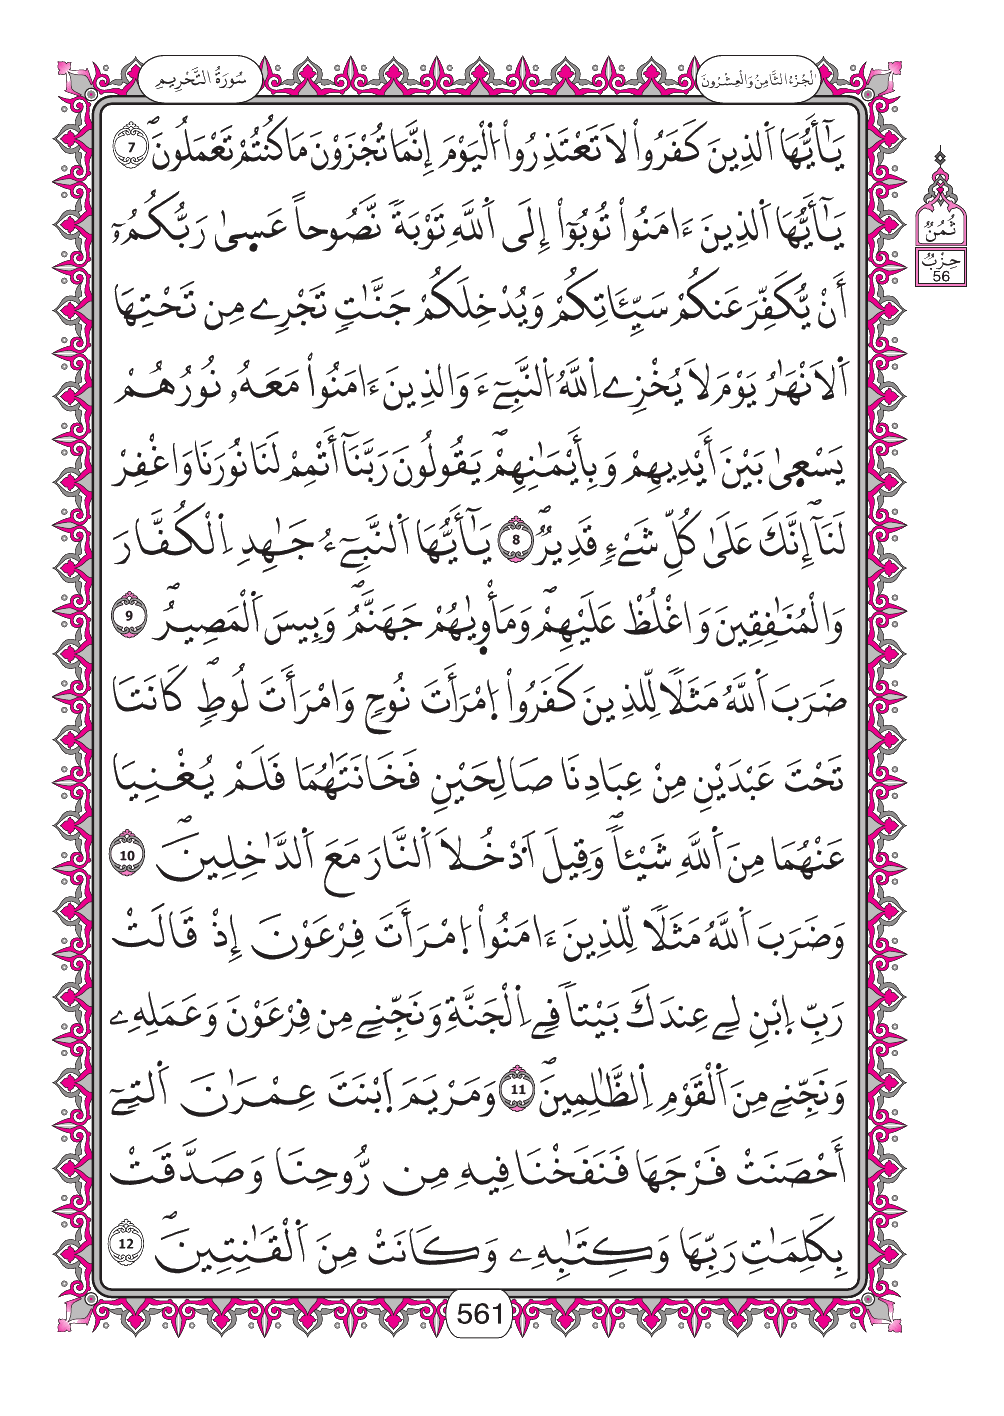 سُورَةُ التَّحْرِيمِ
الْجُزْءُ الثَّامِنُ وَالْعِشْرُونَ
يَٰٓأَيُّهَا اَ۬لذِينَ كَفَرُواْ لَا تَعْتَذِرُواْ اُ۬لْيَوْمَ إِنَّمَا تُجْزَوْنَ مَا كُنتُمْ تَعْمَلُونَۖ 7
يَٰٓأَيُّهَا اَ۬لذِينَ ءَامَنُواْ تُوبُوٓاْ إِلَى اَ۬للَّهِ تَوْبَةٗ نَّصُوحاً عَس۪يٰ رَبُّكُمُۥٓ
ثُمُنُ
حِزْبُ
56
أَنْ يُّكَفِّرَ عَنكُمْ سَيِّـَٔاتِكُمْ وَيُدْخِلَكُمْ جَنَّٰتٖ تَجْرِے مِن تَحْتِهَا
اَ۬لَانْهَٰرُ يَوْمَ لَا يُخْزِے اِ۬للَّهُ اُ۬لنَّبِےٓءَ وَالذِينَ ءَامَنُواْ مَعَهُۥ نُورُهُمْ
يَسْع۪يٰ بَيْنَ أَيْدِيهِمْ وَبِأَيْمَٰنِهِمْۖ يَقُولُونَ رَبَّنَآ أَتْمِمْ لَنَا نُورَنَا وَاغْفِرْ
لَنَآۖ إِنَّكَ عَلَىٰ كُلِّ شَےْءٖ قَدِيرٌۖ 8 يَٰٓأَيُّهَا اَ۬لنَّبِےٓءُ جَٰهِدِ اِ۬لْكُفَّارَ
وَالْمُنَٰفِقِينَ وَاغْلُظْ عَلَيْهِمْۖ وَمَأْو۪يٰهُمْ جَهَنَّمُۖ وَبِيسَ اَ۬لْمَصِيرُۖ 9
ضَرَبَ اَ۬للَّهُ مَثَلٗا لِّلذِينَ كَفَرُواْ اُ۪مْرَأَتَ نُوحٖ وَامْرَأَتَ لُوطٖۖ كَانَتَا
تَحْتَ عَبْدَيْنِ مِنْ عِبَادِنَا صَالِحَيْنِ فَخَانَتَٰهُمَا فَلَمْ يُغْنِيَا
عَنْهُمَا مِنَ اَ۬للَّهِ شَيْـٔاٗۖ وَقِيلَ اَ۟دْخُلَا اَ۬لنَّارَ مَعَ اَ۬لدَّٰخِلِينَۖ 10
وَضَرَبَ اَ۬للَّهُ مَثَلٗا لِّلذِينَ ءَامَنُواْ اُ۪مْرَأَتَ فِرْعَوْنَ إِذْ قَالَتْ
رَبِّ اِ۪بْنِ لِے عِندَكَ بَيْتاٗ فِے اِ۬لْجَنَّةِ وَنَجِّنِے مِن فِرْعَوْنَ وَعَمَلِهِۦ
وَنَجِّنِے مِنَ اَ۬لْقَوْمِ اِ۬لظَّٰلِمِينَۖ 11 وَمَرْيَمَ اَ۪بْنَتَ عِمْرَٰنَ اَ۬لتِےٓ
أَحْصَنَتْ فَرْجَهَا فَنَفَخْنَا فِيهِ مِن رُّوحِنَا وَصَدَّقَتْ
بِكَلِمَٰتِ رَبِّهَا وَكِتَٰبِهِۦ وَكَانَتْ مِنَ اَ۬لْقَٰنِتِينَۖ 12
561